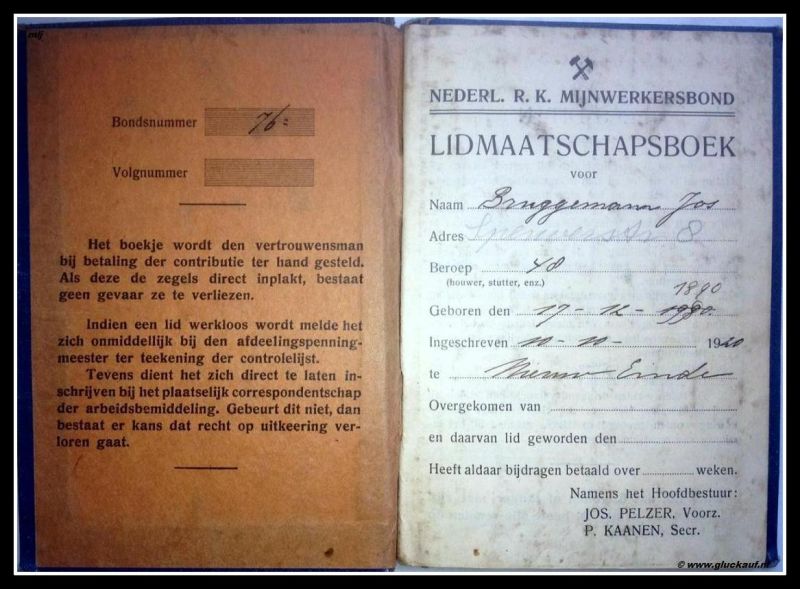 mij
Bondsnummer 76=
Volgnummer
Het boekje wordt den vertrouwensman
bij betaling der contributie ter hand gesteld.
Als deze de zegels direct inplakt, bestaat
geen gevaar ze te verliezen.
Indien een lid werkloos wordt melde het
zich onmiddellijk bij den afdeelingspenning-
meester ter teekening der controlelijst.
Tevens dient het zich direct te laten in-
schrijven bij het plaatselijk correspondentschap
der arbeidsbemiddeling. Gebeurt dit niet, dan
bestaat er kans dat recht op uitkeering ver-
loren gaat.
NEDERL. R. K. MIJNWERKERSBOND
LIDMAATSCHAPSBOEK
voor
Naam Bruggemann Jos
Adres 8
Beroep 48
(houwer, stutter, enz.)
1890
Geboren den 17-12-
Ingeschreven 10-10- 1920
te Nieuw Einde
Overgekomen van
en daarvan lid geworden den
Heeft aldaar bijdragen betaald over weken.
Namens het Hoofdbestuur:
JOS. PELZER, Voorz.
P. KAANEN, Secr.
© www.gluckauf.nl